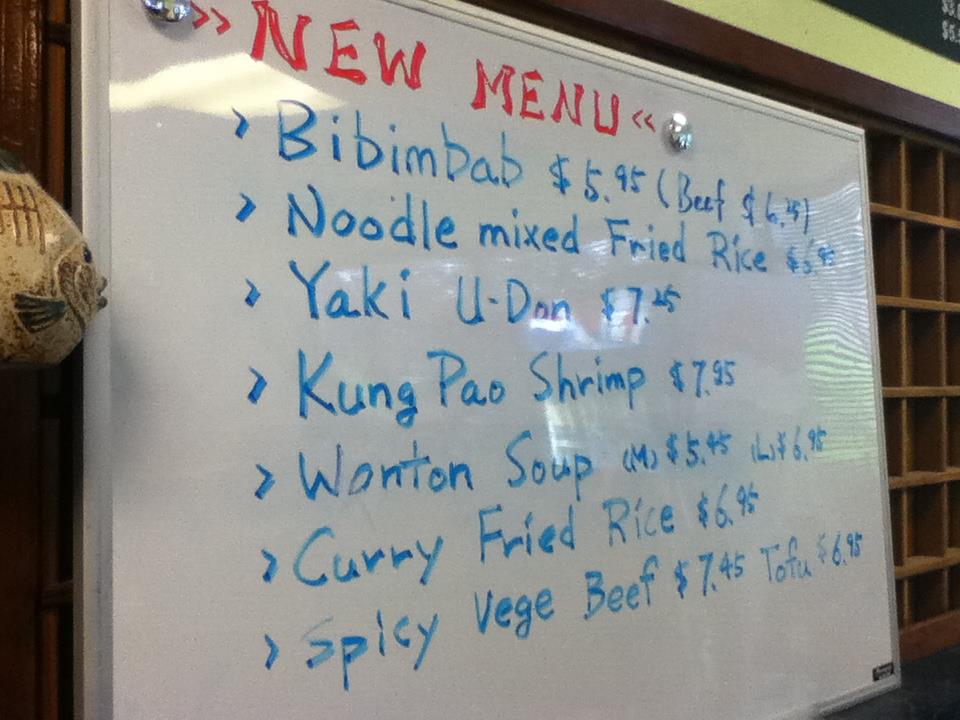 >> NEW MENU <<
> Bibimbab $5.95 (Beef $6.25)
> Noodle mixed Fried Rice
> Yaki U-Don $7.25
> Kung Pao Shrimp $7.95
> Wonton Soup (M) $5.45 (L) $6.95
> Curry Fried Rice $6.95
> Spicy Vege Beef $7.45 Tofu $6.95